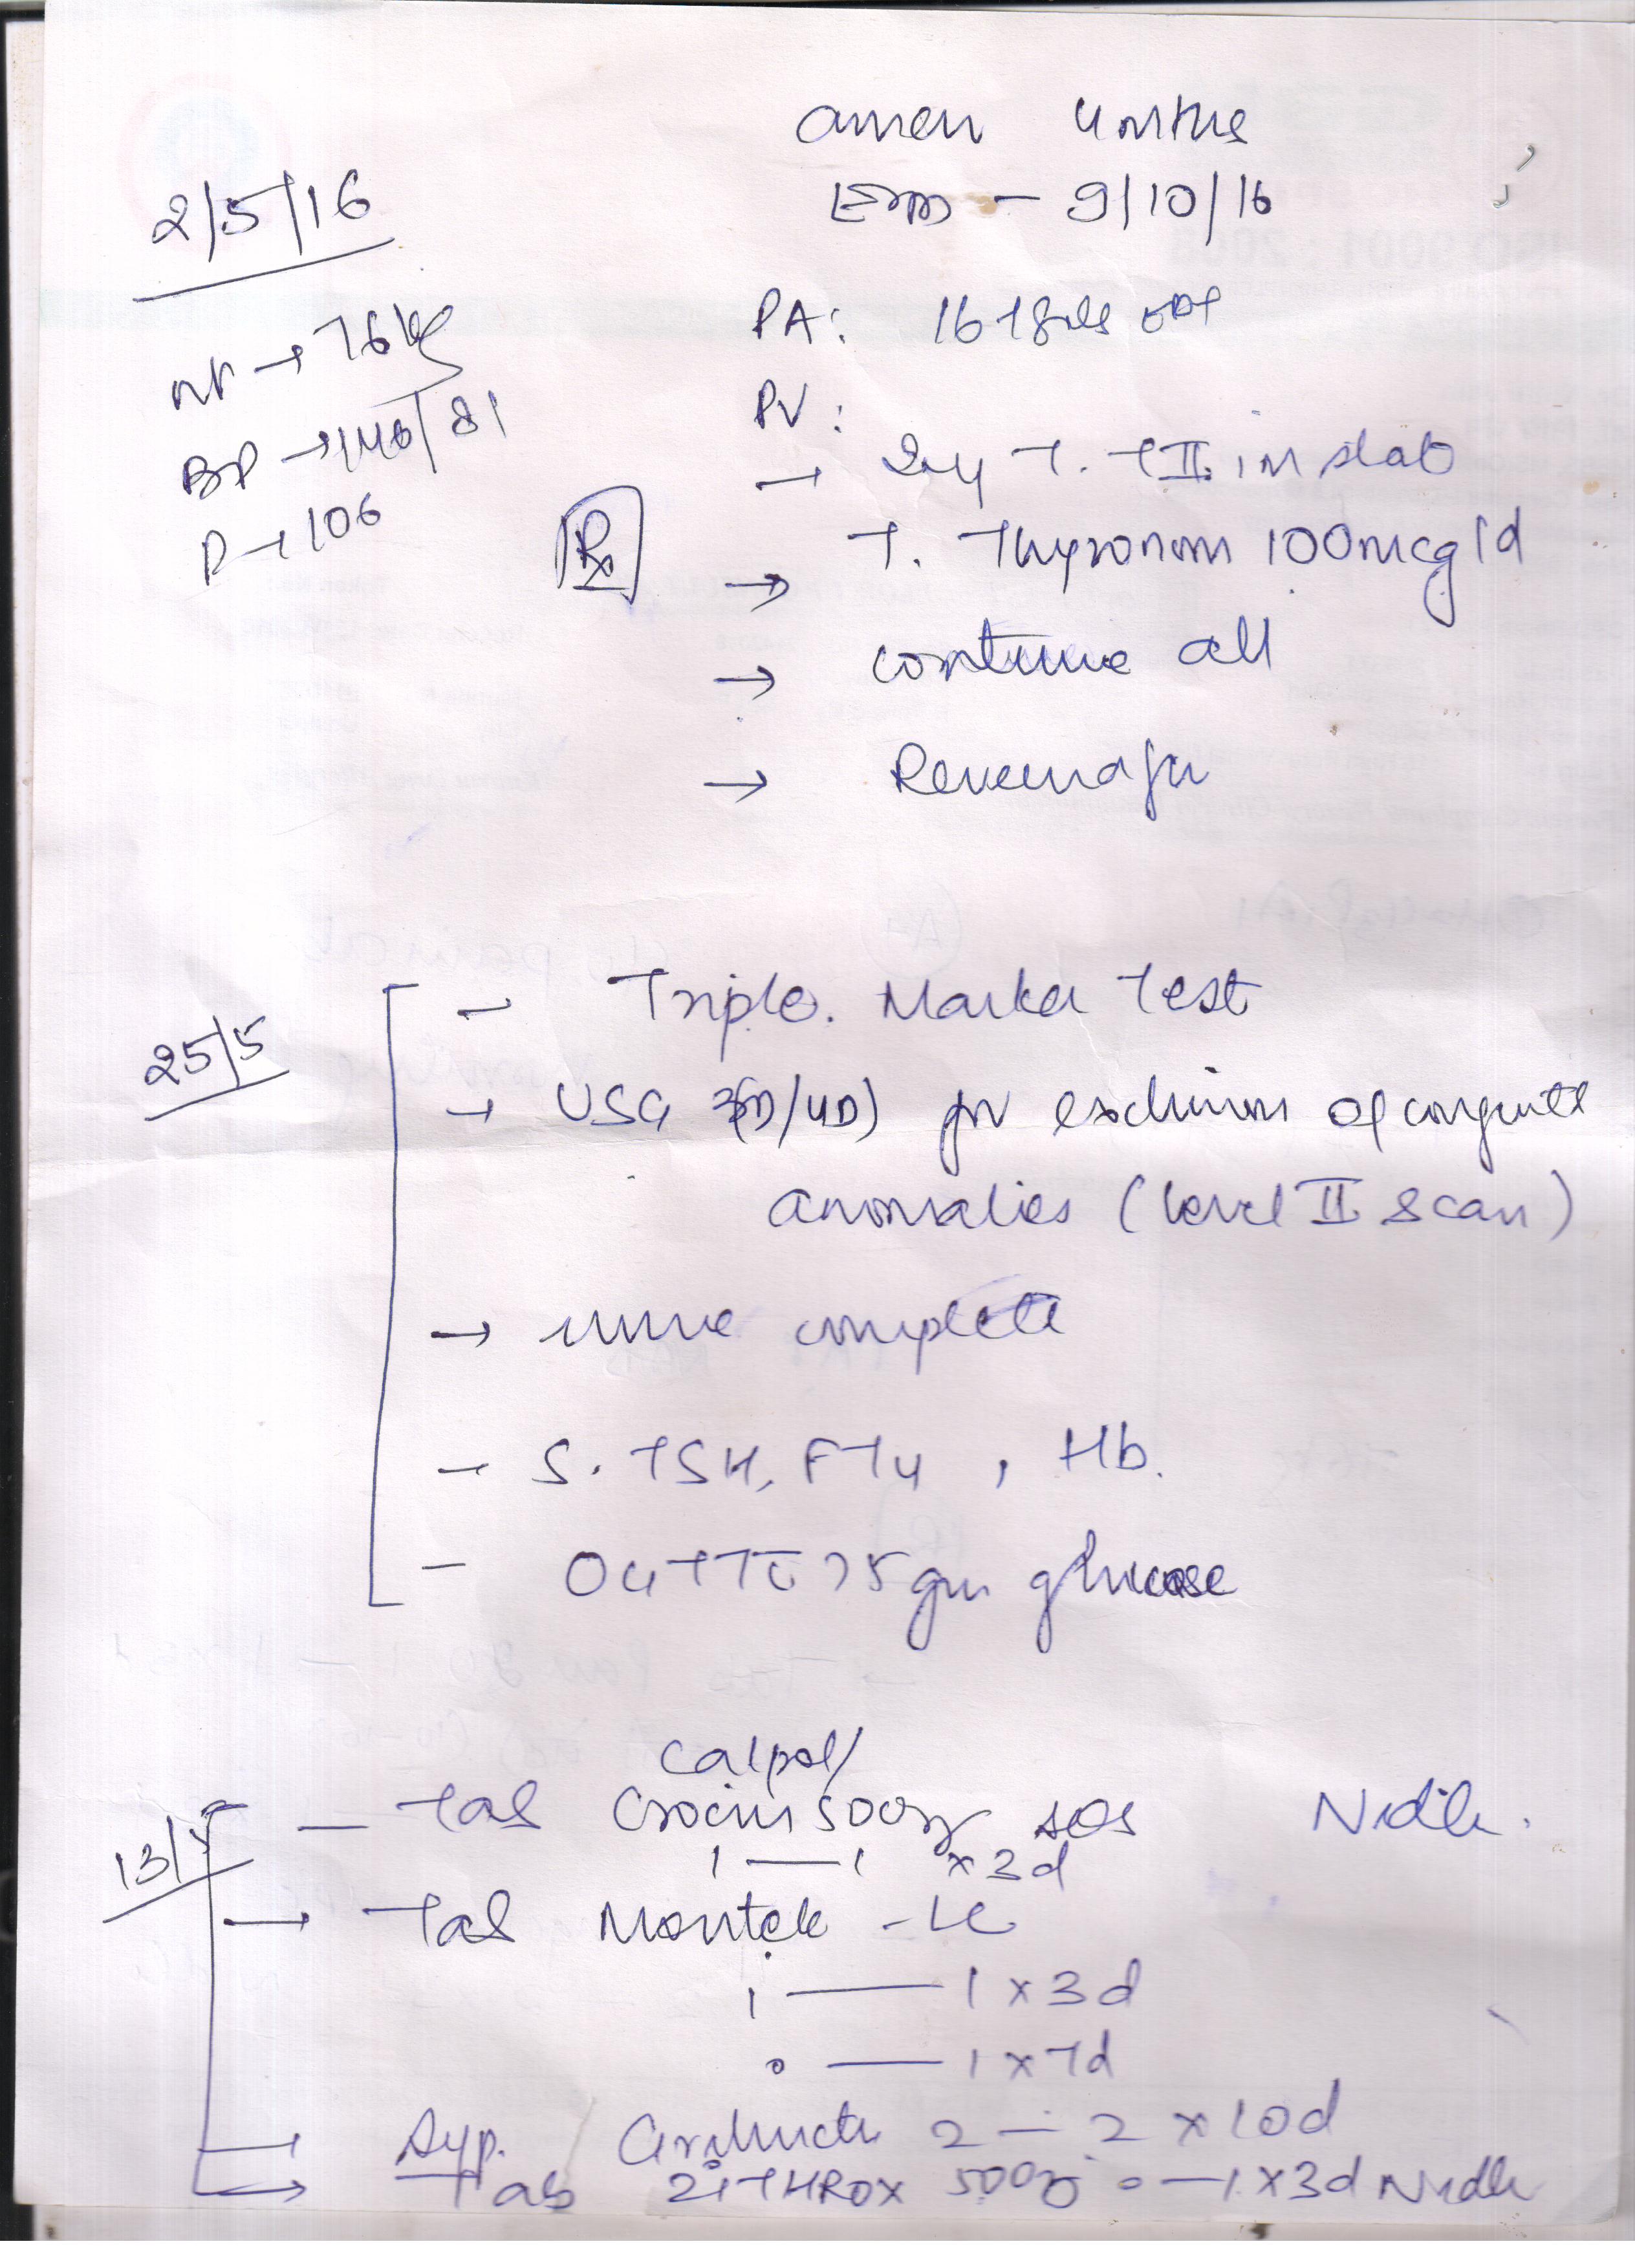 amen 4mths
2/5/16
EDD - 9/10/16
wt → 76kg
PA: 16-18wks
BP → 146/81
PV:
P → 106
→ Inj T. T II in stat
Rx
→ T. Thyronorm 100mcg 1d
→ continue all
→ Review after
25/5
- Triple. Marker Test
→ USG (3D/4D) for exclusion of congenital
anomalies (level II scan)
→ urine complete
- S. TSH, FT4, Hb.
- OGTT c 75 gm glucose
calpol/
13/5
- Tab Crocin 500mg sos Nidhi.
1 — 1 x 3d
→ Tab Montek - LC
1 — 1 x 3d
0 — 1 x 7d
→ Syp. 2 — 2 x 10d
→ Tab ZITHROX 500mg 0 — 1 x 3d Nidhi